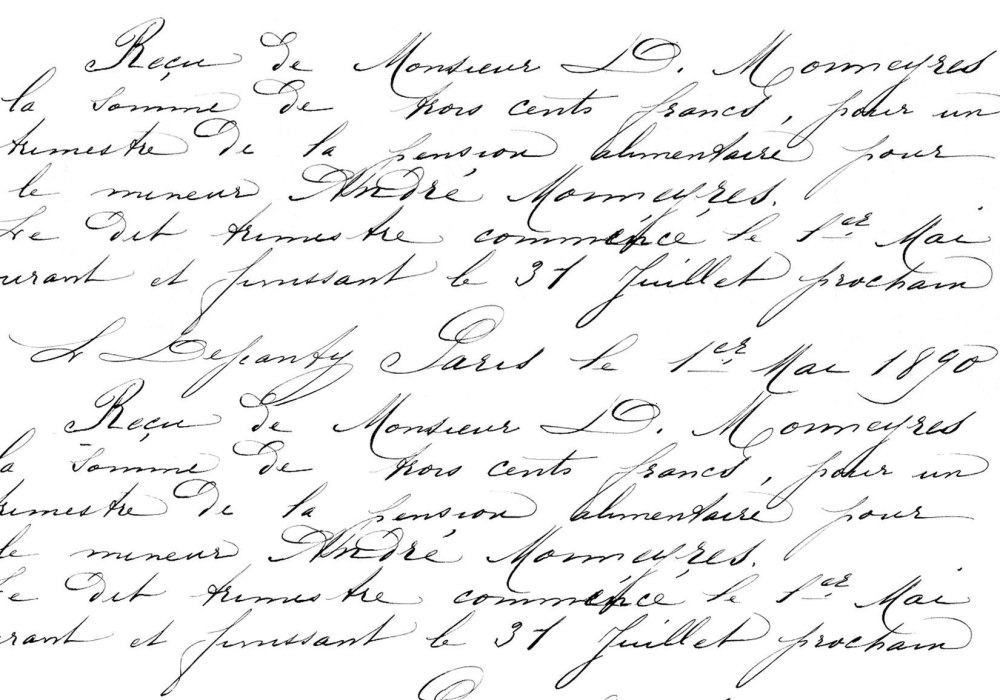 Reçu de Monsieur D. Monneyres
la somme de trois cents francs, pour un
trimestre de la pension alimentaire pour
le mineur André Monneyres.
Le dit trimestre commencé le 1er Mai
urant et finissant le 31 Juillet prochain
Paris le 1er Mai 1890
Reçu de Monsieur D. Monneyres
la somme de trois cents francs, pour un
rimestre de la pension alimentaire pour
le mineur André Monneyres.
Le dit trimestre commencé le 1er Mai
urant et finissant le 31 Juillet prochain